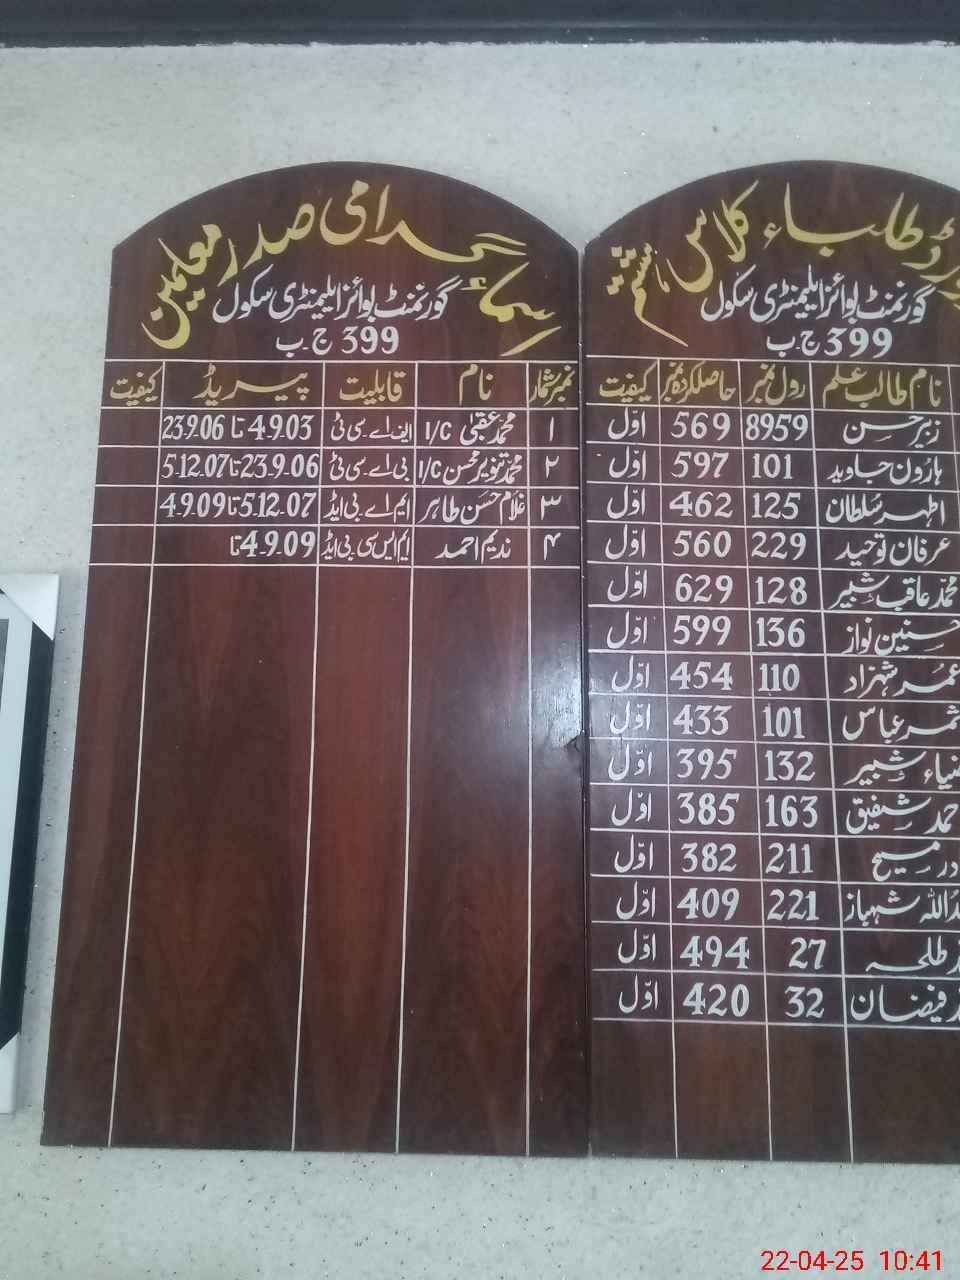 اسمائے گرامی صدر معلمین
گورنمنٹ بوائز ایلیمنٹری سکول
399 ج۔ب
نمبر شمار نام قابلیت پیریڈ کیفیت
۱ محمد عقبیٰ I/C ایف اے۔سی ٹی 4.9.03 تا 23.9.06
۲ محمد تنویر محسن I/C بی اے۔سی ٹی 23.9.06 تا 5.12.07
۳ غلام حسن طاہر ایم اے۔بی ایڈ 5.12.07 تا 4.9.09
۴ ندیم احمد ایم ایس سی۔بی ایڈ 4.9.09 تا
طلباء کلاس ہشتم
گورنمنٹ بوائز ایلیمنٹری سکول
399 ج۔ب
نام طالب علم رول نمبر حاصلکردہ نمبر کیفیت
زبیر حسن 8959 569 اوّل
ہارون جاوید 101 597 اوّل
اظہر سُلطان 125 462 اوّل
عرفان توحید 229 560 اوّل
محمد عاقب شبیر 128 629 اوّل
حسنین نواز 136 599 اوّل
عُمر شہزاد 110 454 اوّل
ثمر عباس 101 433 اوّل
ضیاء شبیر 132 395 اوّل
شفیق 163 385 اوّل
مسیح 211 382 اوّل
شہباز 221 409 اوّل
طلحہ 27 494 اوّل
فیضان 32 420 اوّل
22-04-25 10:41